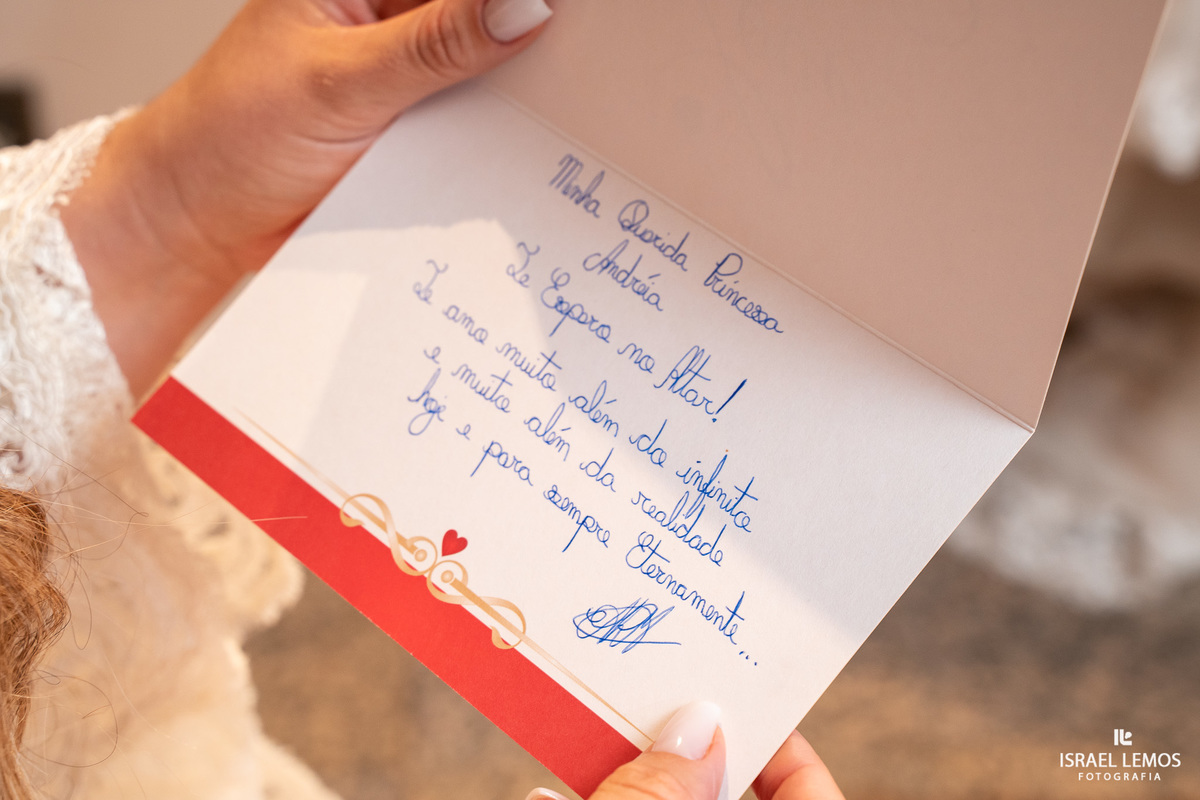 Minha Querida Princesa
Andréia
Te Espero no Altar!
Te amo muito além do infinito
e muito além da realidade
hoje e para sempre Eternamente...
ISRAEL LEMOS
FOTOGRAFIA